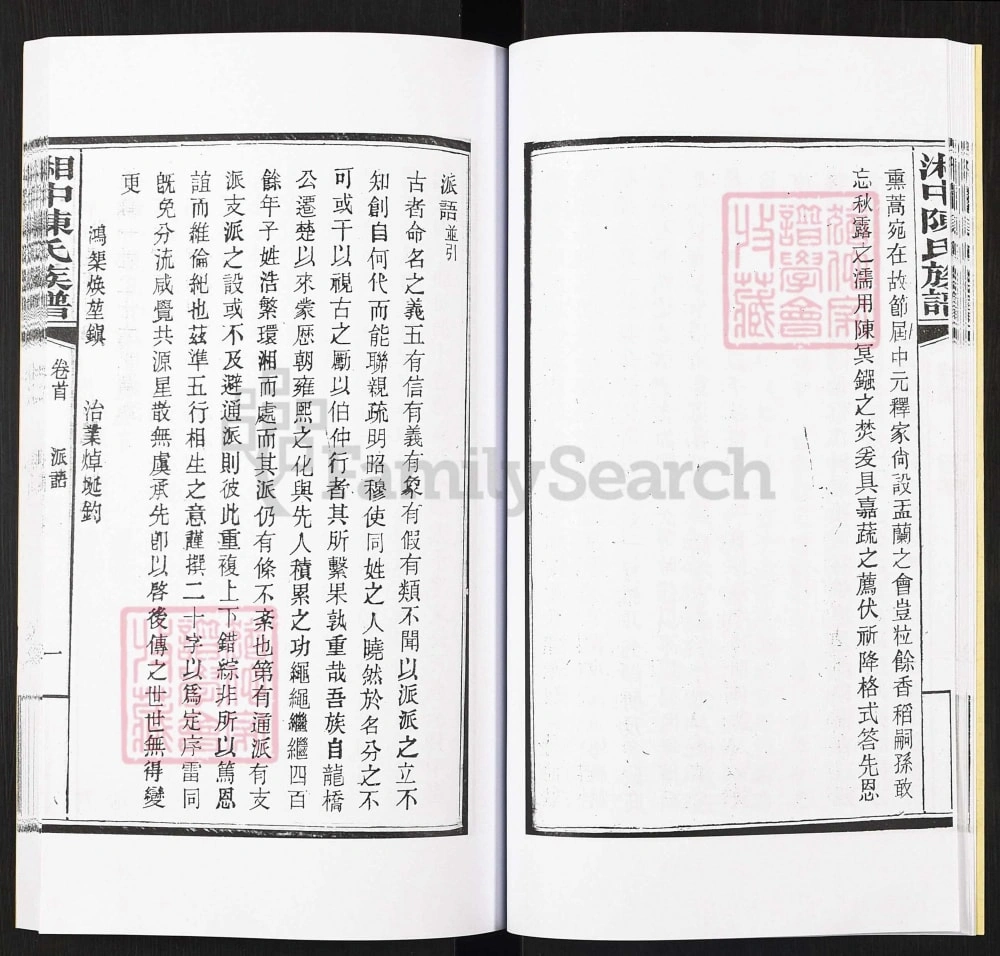 湘中陳氏族譜
熏蒿宛在故節屆中元釋家尙設盂蘭之會豈粒餘香稻嗣孫敢
忘秋露之濡用陳冥鏹之焚爰具嘉蔬之薦伏祈降格式答先恩
派語並引
古者命名之義五有信有義有象有假有類不聞以派派之立不
知創自何代而能聯親疏明昭穆使同姓之人曉然於名分之不
可或干以視古之斸以伯仲行者其所繫果孰重哉吾族自龍橋
公遷楚以來纍歷朝雍熙之化與先人積累之功繩繩繼繼四百
餘年子姓浩繁環湘而處而其派仍有條不紊也第有通派有支
派支派之設或不及避通派則彼此重複上下錯綜非所以篤恩
誼而維倫紀也茲準五行相生之意謹撰二十字以爲定序雷同
旣免分流咸覺共源星散無虞承先卽以啓後傳之世世無得變
更
鴻榘煥堃鎭 治業焯埏鈞
湘中陳氏族譜 卷首 派語 一
譜學會
收藏
譜學會
收藏
FamilySearch